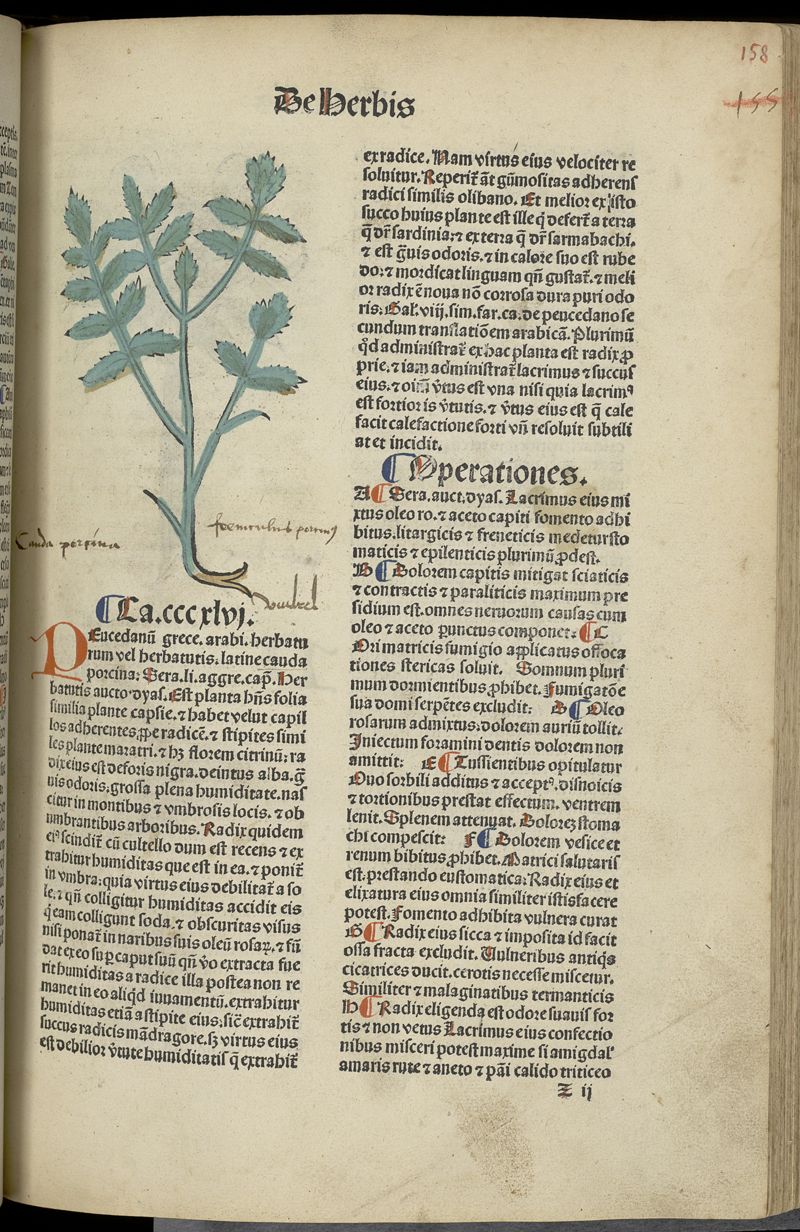 158
155
De Herbis
Cauda porcina
feniculus porcinus
Ca.cccxlvj.
PEucedanū grece. arabi. herbatu
rum vel herbatutis. latine cauda
porcina: Sera. li. aggre. cap. Her
batutis aucto. dyas. Est planta hn̄s folia
similia plante capsie. ⁊ habet velut capil
los adherentes. ꝓpe radicē. ⁊ stipites simi
les plante maratri. ⁊ hꝫ florem citrinū: ra
dix eius est deforis nigra. deintus alba. gͣ
uis odoris. grossa plena humiditate. nas
citur in montibus ⁊ vmbrosis locis. ⁊ ob
umbrantibus arboribus. Radix quidem
eiꝰ scindit̄ cū cultello dum est recens ⁊ ex
trahitur humiditas que est in ea. ⁊ ponit̄
in vmbra. quia virtus eius debilitat̄ a so
le. ⁊ qn̄ colligitur humiditas accidit eis
q̇ eam colligunt soda. ⁊ obscuritas visus
nisi ponat̄ in naribus suis oleū rosaꝝ. ⁊ fū
dat ex eo suꝑ caput suū qn̄ vo extracta fue
rit humiditas a radice illa postea non re
manet in eo aliqd iuuamentū. extrahitur
humiditas etiā a stipite eius. sic̄ extrahit̄
succus radicis mādragore. sꝫ virtus eius
est debilior v̄tute humiditatis q̄ extrahit̄
ex radice. Nam virtus eius velociter re
soluitur. Reperit̄ āt gūmositas adherens
radici similis olibano. Et melior ex isto
succo huius plante est ille q̇ defert̄ a terra
q̄ dr̄ sardinia. ⁊ ex terra q̄ dr̄ sarmabachi.
⁊ est gͣuis odoris. ⁊ in calore suo est rube
do. ⁊ mordicat linguam qn̄ gustat̄. ⁊ meli
or radix ē noua nō corrosa dura puri odo
ris. Gal. viij. sim. far. ca. de peucedano se
cundum translatiōem arabicā. Plurimū
qd̄ administrat̄ ex hac planta est radix. ꝓ
prie. ⁊ iam administrat̄ lacrimus ⁊ succus
eius. ⁊ oim̄ v̄tus est vna nisi quia lacrimꝰ
est fortioris v̄tutis. ⁊ v̄tus eius est q̄ cale
facit calefactione forti vn̄ resoluit subtili
at et incidit.
Operationes.
A Sera. auct. dyas. Lacrimus eius mi
xtus oleo ro. ⁊ aceto capiti fomento adhi
bitus. litargicis ⁊ freneticis medetur sto
maticis ⁊ epilenticis plurimū ꝓdest.
B Dolorem capitis mitigat sciaticis
⁊ contractis ⁊ paraliticis maximum pre
sidium est. omnes neruorum causas cum
oleo ⁊ aceto ꝑunctus componet. C
Ori matricis fumigio applicatus offoca
tiones stericas soluit. Somnum pluri
mum dormientibus ꝓhibet. Fumigatōe
sua domi serpētes excludit: D Oleo
rosarum admixtus. dolorem auriū tollit.
Iniectum foramini dentis dolorem non
amittit: E Tussientibus opitulatur
Ouo sorbili additus ⁊ acceptꝰ. disnoicis
⁊ tortionibus prestat effectum. ventrem
lenit. Splenem attenuat. Doloreꝫ stoma
chi compescit: F Dolorem vesice et
renum bibitus ꝓhibet. Matrici salutaris
est. prestando eustomatica. Radix eius et
elixatura eius omnia similiter istis facere
potest. Fomento adhibita vulnera curat
G Radix eius sicca ⁊ imposita id facit
ossa fracta excludit. Vulneribus antiqͣs
cicatrices ducit. cerotis necesse miscetur.
Similiter ⁊ malaginatibus termanticis
H Radix eligenda est odore suauis for
tis ⁊ non vetus Lacrimus eius confectio
nibus misceri potest maxime si amigdal'
amaris rute ⁊ aneto ⁊ pāi calido triticeo
Z ij